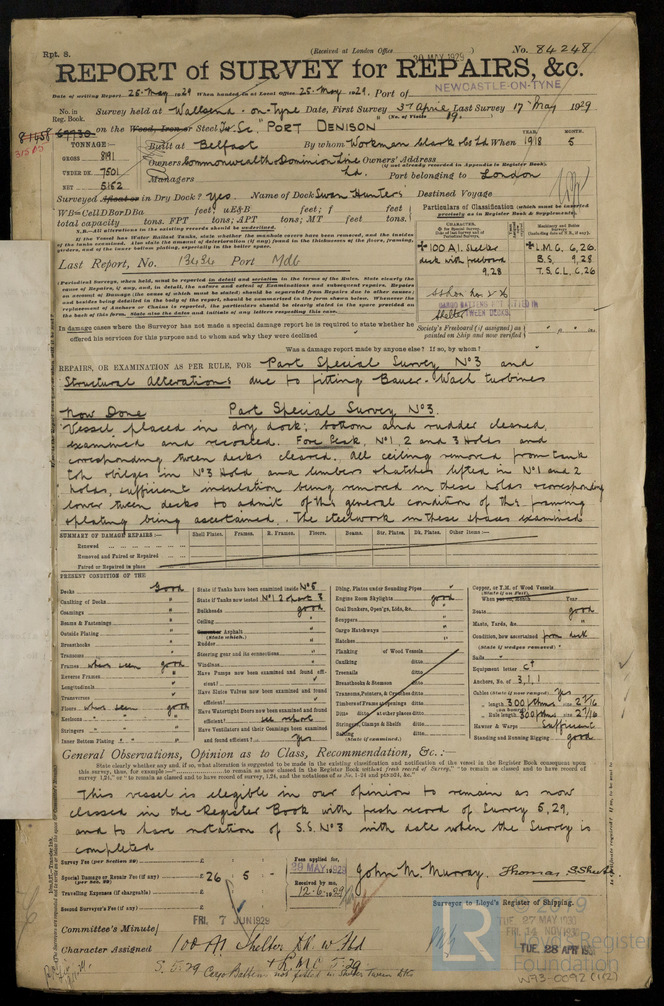 Rpt. 8.
(Received at London Office 30 MAY 1929)
No. 84248
REPORT of SURVEY for REPAIRS, &c.
Date of writing Report 25-May 1929 When handed in at Local Office 25-May 1929. Port of NEWCASTLE-ON-TYNE
No. in Reg. Book.
Survey held at Wallsend-on-Tyne Date, First Survey 3rd April Last Survey 17 May 1929
(No. of Visits 19.)
on the Wood, Iron or Steel Tw. Sc. "PORT DENISON"
TONNAGE:—
GROSS 8191
UNDER DK. 7501
NET 5152
Built at Belfast By whom Workman Clark & Co Ld When 1918 5
YEAR. MONTH.
Owners Commonwealth & Dominion Line Ld. Owners' Address
(if not already recorded in Appendix to Register Book).
Managers Port belonging to London
Surveyed afloat or in Dry Dock? Yes Name of Dock Swan Hunters Destined Voyage
WB=CellDBorDBa feet; uE&B feet; f feet
total capacity tons. FPT tons; APT tons; MT feet tons.
N.B.—All alterations in the existing records should be underlined.
Last Report, No. 13434 Port Mdb
Particulars of Classification (which must be inserted precisely as in Register Book & Supplements).
+100A1. Shelter
deck with freeboard
9,28
+L.M.C. 6,26
B.S. 9,28
T.S.C.L. 6,26
CARGO BATTENS NOT FITTED IN
Shelter TWEEN DECKS
Society's Freeboard (if assigned) as painted on Ship and now verified
(Periodical Surveys, when held, must be reported in detail and seriatim in the terms of the Rules. State clearly the cause of Repairs, if any, and, in detail, the nature and extent of Examinations and subsequent repairs. Repairs on account of Damage (the cause of which must be stated) should be separated from Repairs due to other causes and besides being detailed in the body of the report, should be summarised in the form shewn below. Whenever the replacement of Anchors or Chains is reported, the particulars should be clearly stated in the space provided on the back of this form. State also the dates and initials of any letters respecting this case.
In damage cases where the Surveyor has not made a special damage report he is required to state whether he
offered his services for this purpose and to whom and why they were declined
Was a damage report made by anyone else? If so, by whom?
REPAIRS, OR EXAMINATION AS PER RULE, FOR Part Special Survey No 3 and
Structural Alterations due to fitting Bauer-Wach turbines
Now Done Part Special Survey No 3.
Vessel placed in dry dock; bottom and rudder cleaned,
examined and recoated. Fore Peak, No 1, 2 and 3 Holds and
corresponding tween decks cleared. All ceiling removed from tank
top & bilges in No 3 Hold and limbers & hatches lifted in No 1 and 2
holds, sufficient insulation being removed in these holds & corresponding
lower tween decks to admit of the general condition of the framing
& plating being ascertained. The steelwork in these spaces examined
SUMMARY OF DAMAGE REPAIRS:— Shell Plates. Frames. R. Frames. Floors. Beams. Str. Plates. Dk. Plates. Other Items:—
Renewed
Removed and Faired or Repaired
Faired or Repaired in place
PRESENT CONDITION OF THE
Decks Good
Caulking of Decks "
Coamings "
Beams & Fastenings "
Outside Plating "
Breasthooks "
Transoms "
Frames where seen good
Reverse Frames "
Longitudinals "
Transverses "
Floors where seen good
Keelsons " " "
Stringers " " "
Inner Bottom Plating " "
State if Tanks have been examined inside No 5
State if Tanks now tested No 1 2 & part 3
Bulkheads good
Ceiling "
Asphalt "
(State which.)
Rudder "
Steering gear and its connections "
Windlass "
Have Pumps now been examined and found efficient? "
Have Sluice Valves now been examined and found efficient? "
Have Watertight Doors now been examined and found efficient? see report
Have Ventilators and their Coamings been examined and found efficient? Yes
Dblng. Plates under Sounding Pipes "
Engine Room Skylights good
Coal Bunkers, Open'gs, Lids, &c. "
Scuppers "
Cargo Hatchways "
Hatches "
Planking of Wood Vessels
Caulking ditto
Treenails ditto
Breasthooks & Stemson ditto
Transoms, Pointers, & Crutches ditto
Timbers of Frame at openings ditto
Ditto at other places ditto
Stringers, Clamps & Shelfs ditto
Salting ditto
(State if examined.)
Copper, or Y.M. of Wood Vessels
(State if on Felt)
When put on, Month Year
Boats good
Masts, Yards, &c. "
Condition, how ascertained from deck
(State if wedges removed)
Sails "
Equipment letter c†
Anchors, No. of 3,1,1
Cables (State if now ranged) Yes
" length 300 fthms size 2 7/16
(on board)
" Rule length 300 fthms size 2 7/16
Hawser & Warps Sufficient
Standing and Running Rigging good
General Observations, Opinion as to Class, Recommendation, &c.:—
This vessel is eligible in our opinion to remain as now
classed in the Register Book with fresh record of Survey 5,29,
and to have notation of S.S. No 3 with date when the Survey is
completed
Survey Fee (per Section 29) £
Special Damage or Repair Fee (if any) £ 26 : 5 : -
(per Sec. 29)
Travelling Expenses (if chargeable) £
Second Surveyor's Fee (if any) £
Fees applied for, 29 MAY 1929
Received by me, 12.6.1929
John M. Murray. Thomas S Shute
Surveyor to Lloyd's Register of Shipping.
Committee's Minute FRI. 7 JUN 1929
Character Assigned 100 A1 Shelter Dk w. Fbd
S. 5.29 + LMC 5.29
Cargo Battens not fitted in Shelter tween dks
TUE. 27 MAY 1930
FRI. 14 NOV 1930
TUE. 28 APR 1931
© 2019
LR
Lloyd's Register
Foundation
W73-0092 (1(2)